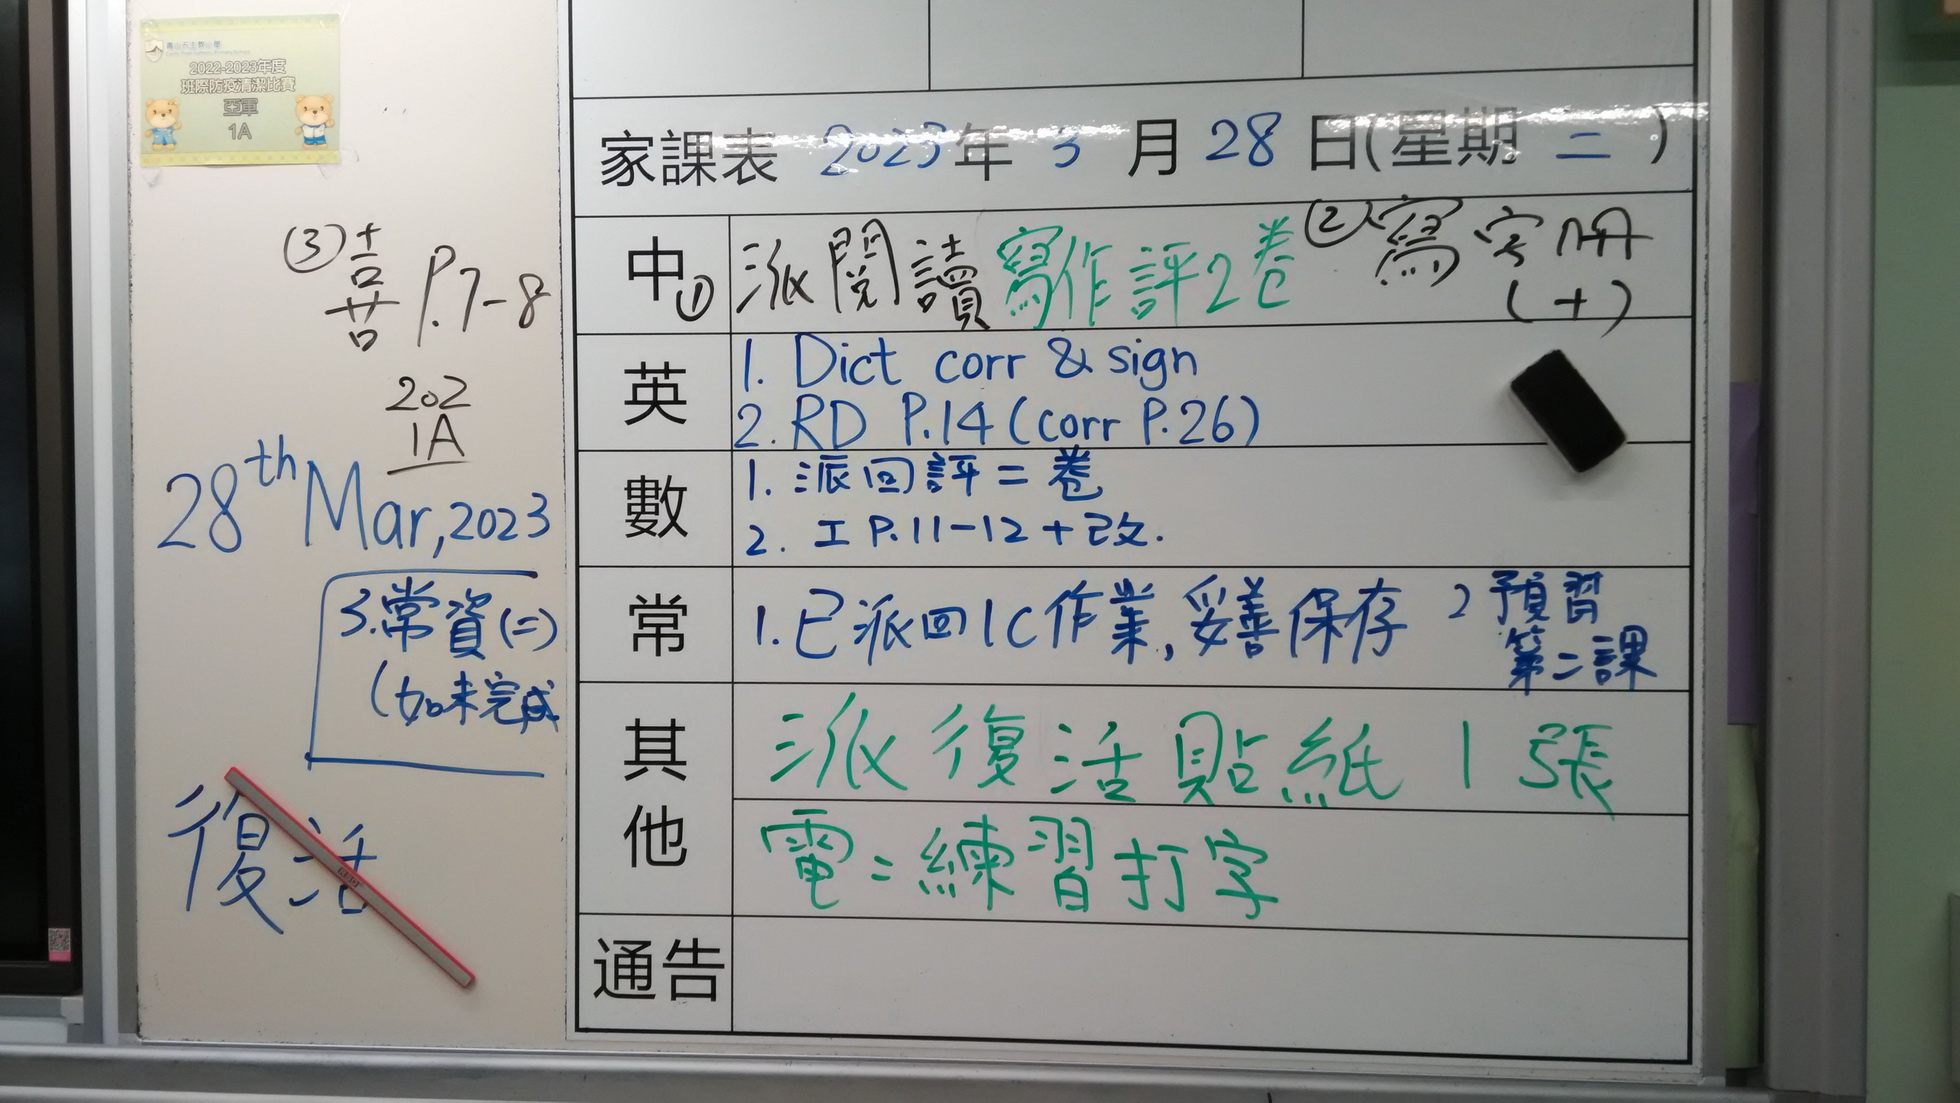 2022-2023年度
班際防疫清潔比賽
亞軍
1A
家課表 2023年 3 月 28 日(星期 二 )
中 ① 派閱讀寫作評2卷 ② 寫字册(十)
③ P.7-8
英
1. Dict corr & sign
2. RD P.14 (corr P.26)
數
1. 派回評二卷
2. 工 P.11-12 + 改.
常
1. 已派回1C作業, 妥善保存 2 預習
第二課
3. 常資(二)
(如未完成
其他
派復活貼紙 1 張
電: 練習打字
通告
202
1A
28th Mar, 2023
復活